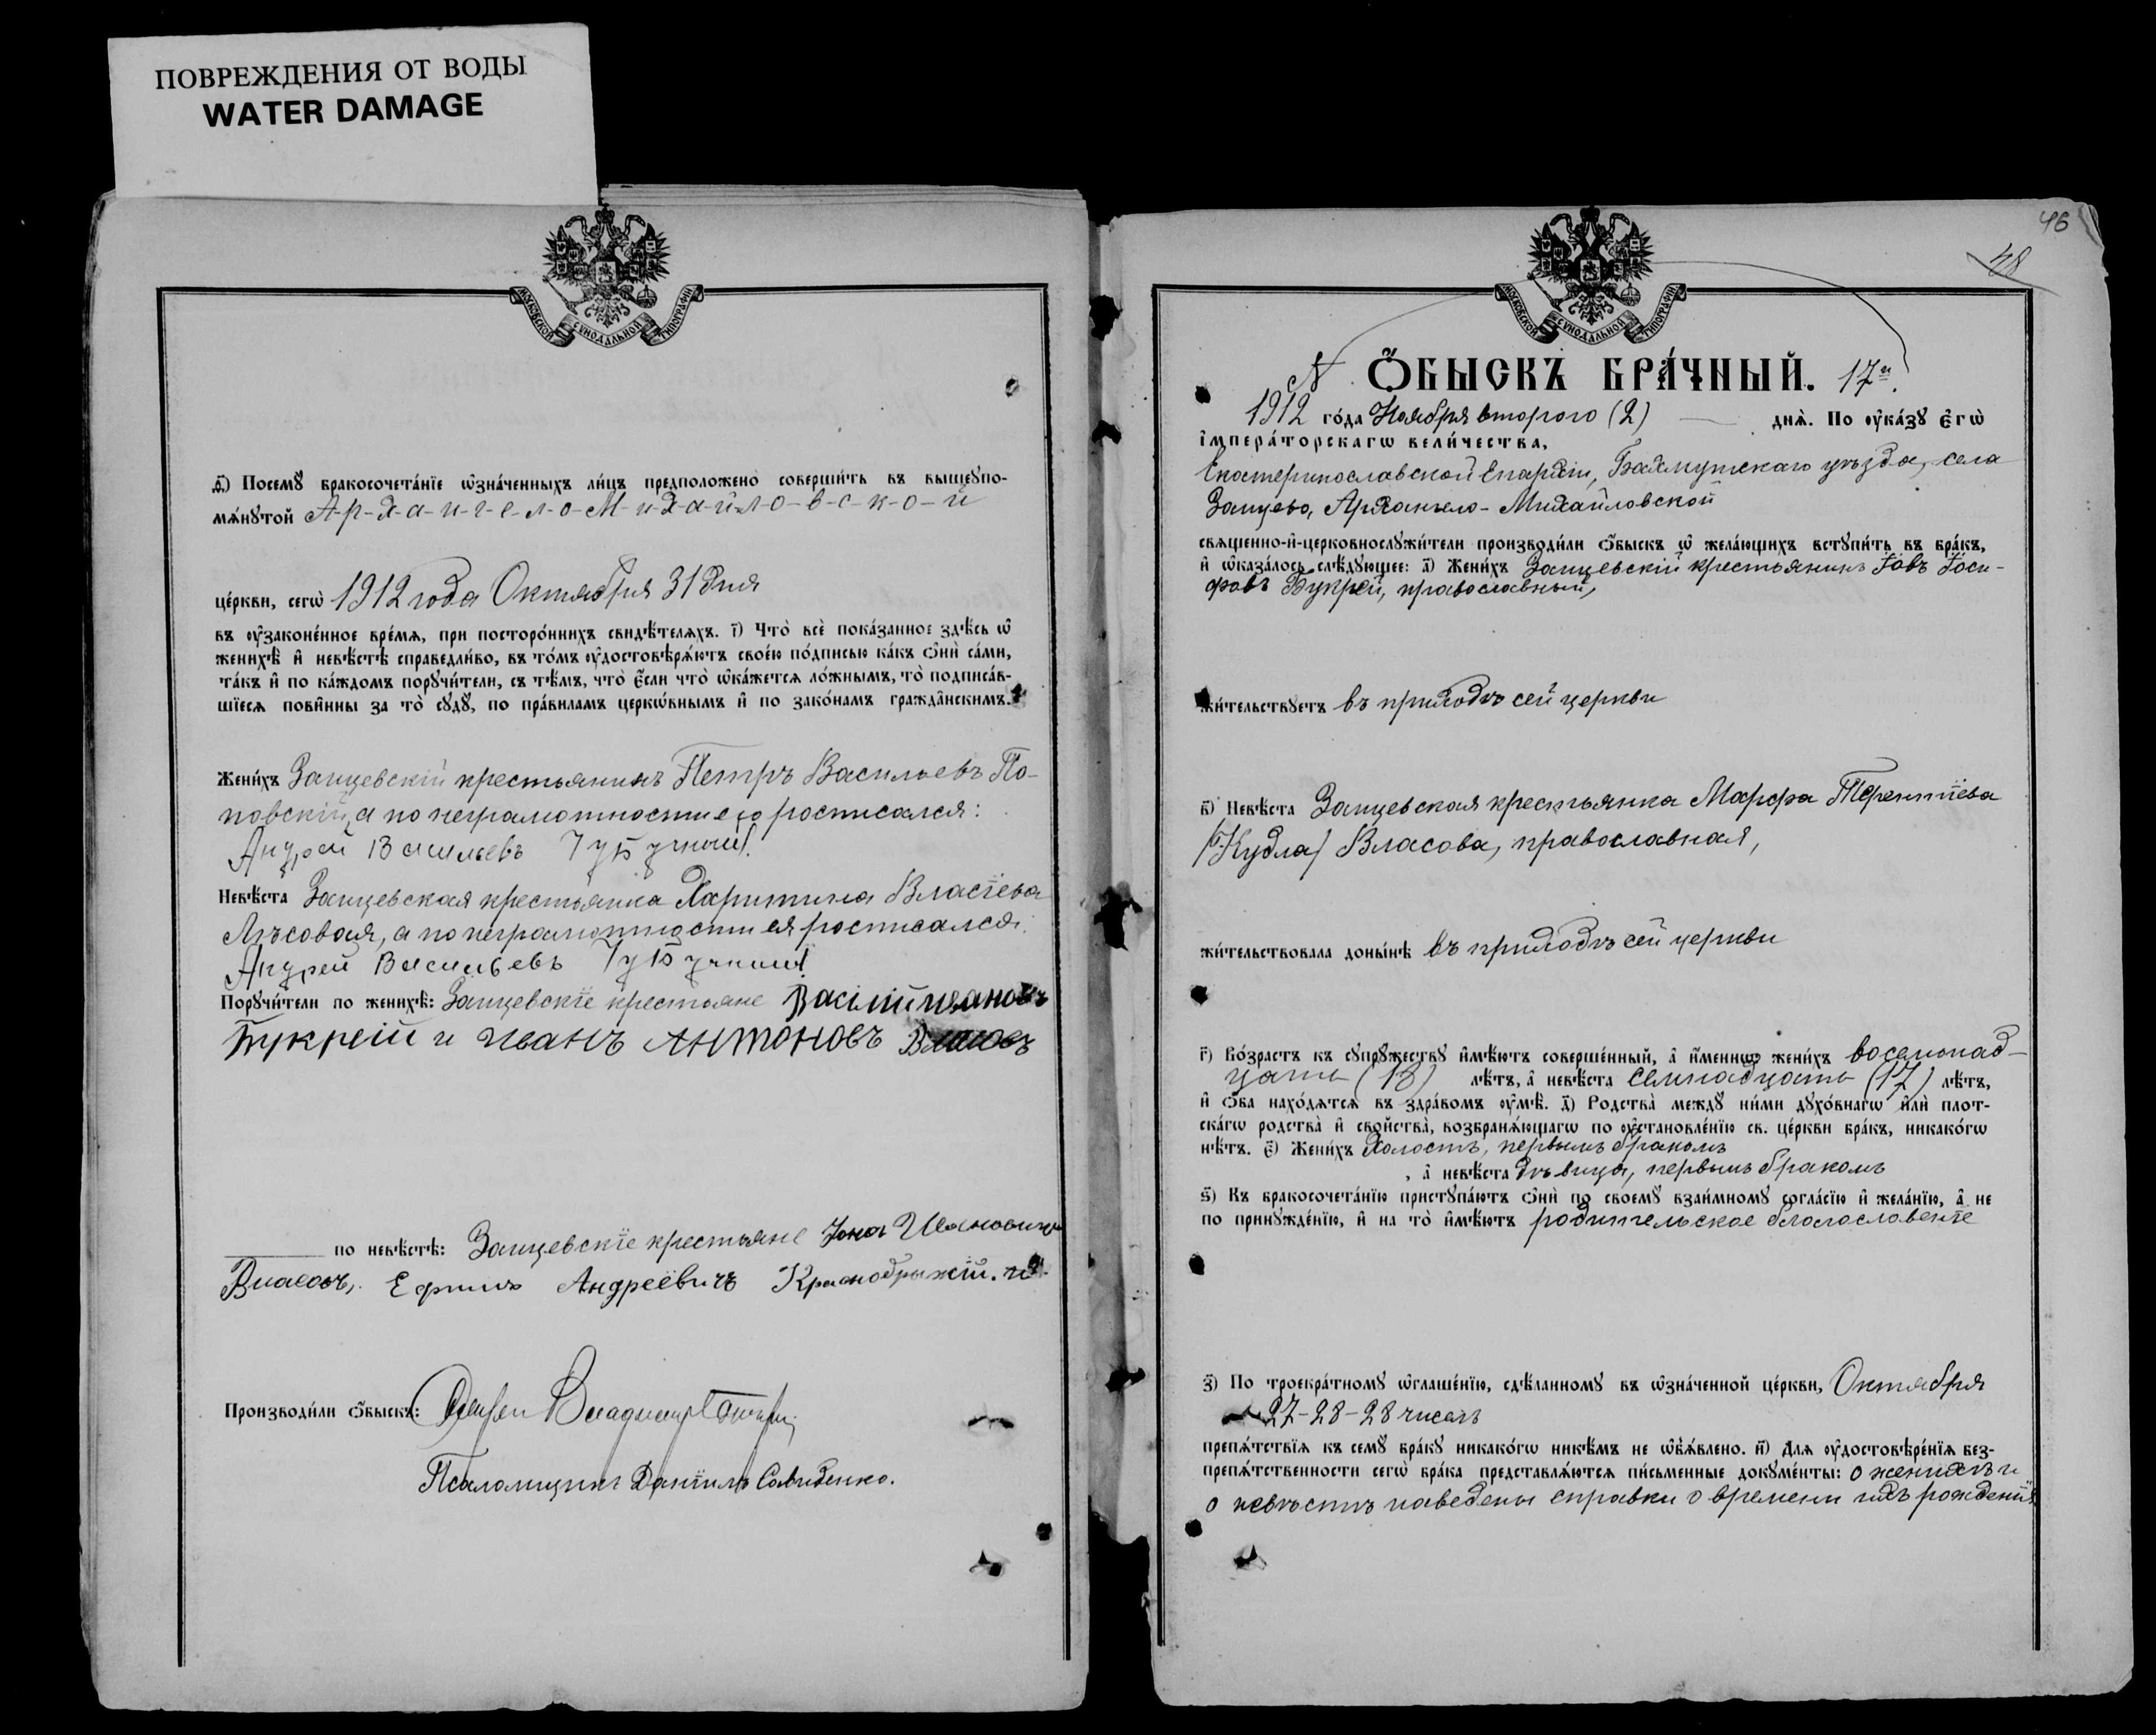 ПОВРЕЖДЕНИЯ ОТ ВОДЫ
WATER DAMAGE
МОСКОВСКОЙ СѴНОДАЛЬНОЙ ТИПОГРАФІИ
д҃) Посемꙋ бракосочета́нїе ѡ҆зна́ченныхъ ли́цъ предположено̀ соверши́ть въ вышеꙋпо-
мѧ́нꙋтой А-р-х-а-н-г-е-л-о-М-и-х-а-й-л-о-в-с-к-о-й
це́ркви, сегѡ̀ 1912 года Октября 31 дня
въ ᲂу҆законе́нное вре́мѧ, при посторо́ннихъ свидѣ́телѧхъ. і҃) Что̀ всѐ пока́занное здѣ́сь ѡ҆
женихѣ̀ и҆ невѣ́стѣ справедли́во, въ то́мъ ᲂу҆достовѣрѧ́ютъ свое́ю по́дписью ка́къ ѻ҆нѝ са́ми,
та́къ и҆ по ка́ждомъ порꙋчи́тели, съ тѣ́мъ, что̀ є҆́сли что̀ ѡ҆ка́жетсѧ ло́жнымъ, то̀ подписа́в-
шїесѧ пови́нны за то̀ сꙋдꙋ̀, по пра́виламъ церкѡ́внымъ и҆ по зако́намъ гражда́нскимъ.
Жени́хъ Зайцевскій крестьянинъ Петръ Васильевъ По-
повскій, а по неграмотности его росписался:
Андрей Васильевъ
Невѣ́ста Зайцевская крестьянка Харитина Власіева
Лѣсовая, а по неграмотности ея росписался:
Андрей Васильевъ
Порꙋчи́тели по женихѣ̀: Зайцевскіе крестьяне Василій Ивановъ
Букрей и Иванъ Антоновъ Власовъ
по невѣ́стѣ: Зайцевскіе крестьяне Іона Ивановичъ
Власовъ, Ефимъ Андреевичъ Краснобрыжій.
Производи́ли ѻ҆́быскъ: Владиміръ
Псаломщикъ Даніилъ Савиденко.
46
48
МОСКОВСКОЙ СѴНОДАЛЬНОЙ ТИПОГРАФІИ
№ Ѻ҆́БЫСКЪ БРА́ЧНЫЙ. 17й.
1912 го́да Ноября второго (2) днѧ̀. По ᲂу҆ка́зꙋ є҆гѡ̀
і҆мпера́торскагѡ вели́чества,
Екатеринославской Епархіи, Бахмутскаго уѣзда, села
Зайцево, Архангело-Михайловской
свѧще́нно-и҆-церковнослꙋжи́тели производи́ли ѻ҆́быскъ ѡ҆ жела́ющихъ встꙋпи́ть въ бра́къ,
и҆ ѡ҆каза́лось слѣ́дꙋющее: а҃) Жени́хъ Зайцевскій крестьянинъ Іовъ Іоси-
фовъ Букрей, православный,
жи́тельствꙋетъ въ приходѣ сей церкви
в҃) Невѣ́ста Зайцевская крестьянка Марфа Терентіева
(Кудла) Власова, православная,
жи́тельствовала доны́нѣ въ приходѣ сей церкви
г҃) Во́зрастъ къ сꙋпрꙋ́жествꙋ и҆мѣ́ютъ соверше́нный, а҆ и҆́менно жени́хъ восемнад-
цати (18) лѣ́тъ, а҆ невѣ́ста семнадцати (17) лѣ́тъ,
и҆ ѻ҆́ба нахо́дѧтсѧ въ здра́вомъ ᲂу҆мѣ̀. д҃) Родства̀ междꙋ̀ ни́ми дꙋхо́внагѡ и҆лѝ плот-
ска́гѡ родства̀ и҆ свойства̀, возбранѧ́ющагѡ по ᲂу҆становле́нїю св. це́ркви бра́къ, никако́гѡ
нѣ́тъ. є҃) Жени́хъ холостъ, первымъ бракомъ
, а҆ невѣ́ста дѣвица, первымъ бракомъ
ѕ҃) Къ бракосочета́нїю пристꙋпа́ютъ ѻ҆нѝ по своемꙋ̀ взаи́мномꙋ согла́сїю и҆ жела́нїю, а҆ не
по принꙋжде́нїю, и҆ на то̀ и҆мѣ́ютъ родительское благословеніе
з҃) По троекра́тномꙋ ѡ҆глаше́нїю, сдѣ́ланномꙋ въ ѡ҆зна́ченной це́ркви, Октября
27-28-28 чиселъ
препѧ́тствїѧ къ семꙋ̀ бра́кꙋ никако́гѡ никѣ́мъ не ѡ҆б̾ѧ́влено. и҃) Длѧ ᲂу҆достовѣре́нїѧ без-
препѧ́тственности сегѡ̀ бра́ка представлѧ́ютсѧ пи́сьменные докꙋме́нты: о женихѣ и
о невѣстѣ наведены справки о времени ихъ рожденія